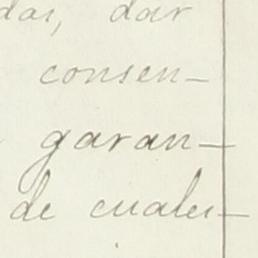 das, dar
consen-
garan-
de cuales-